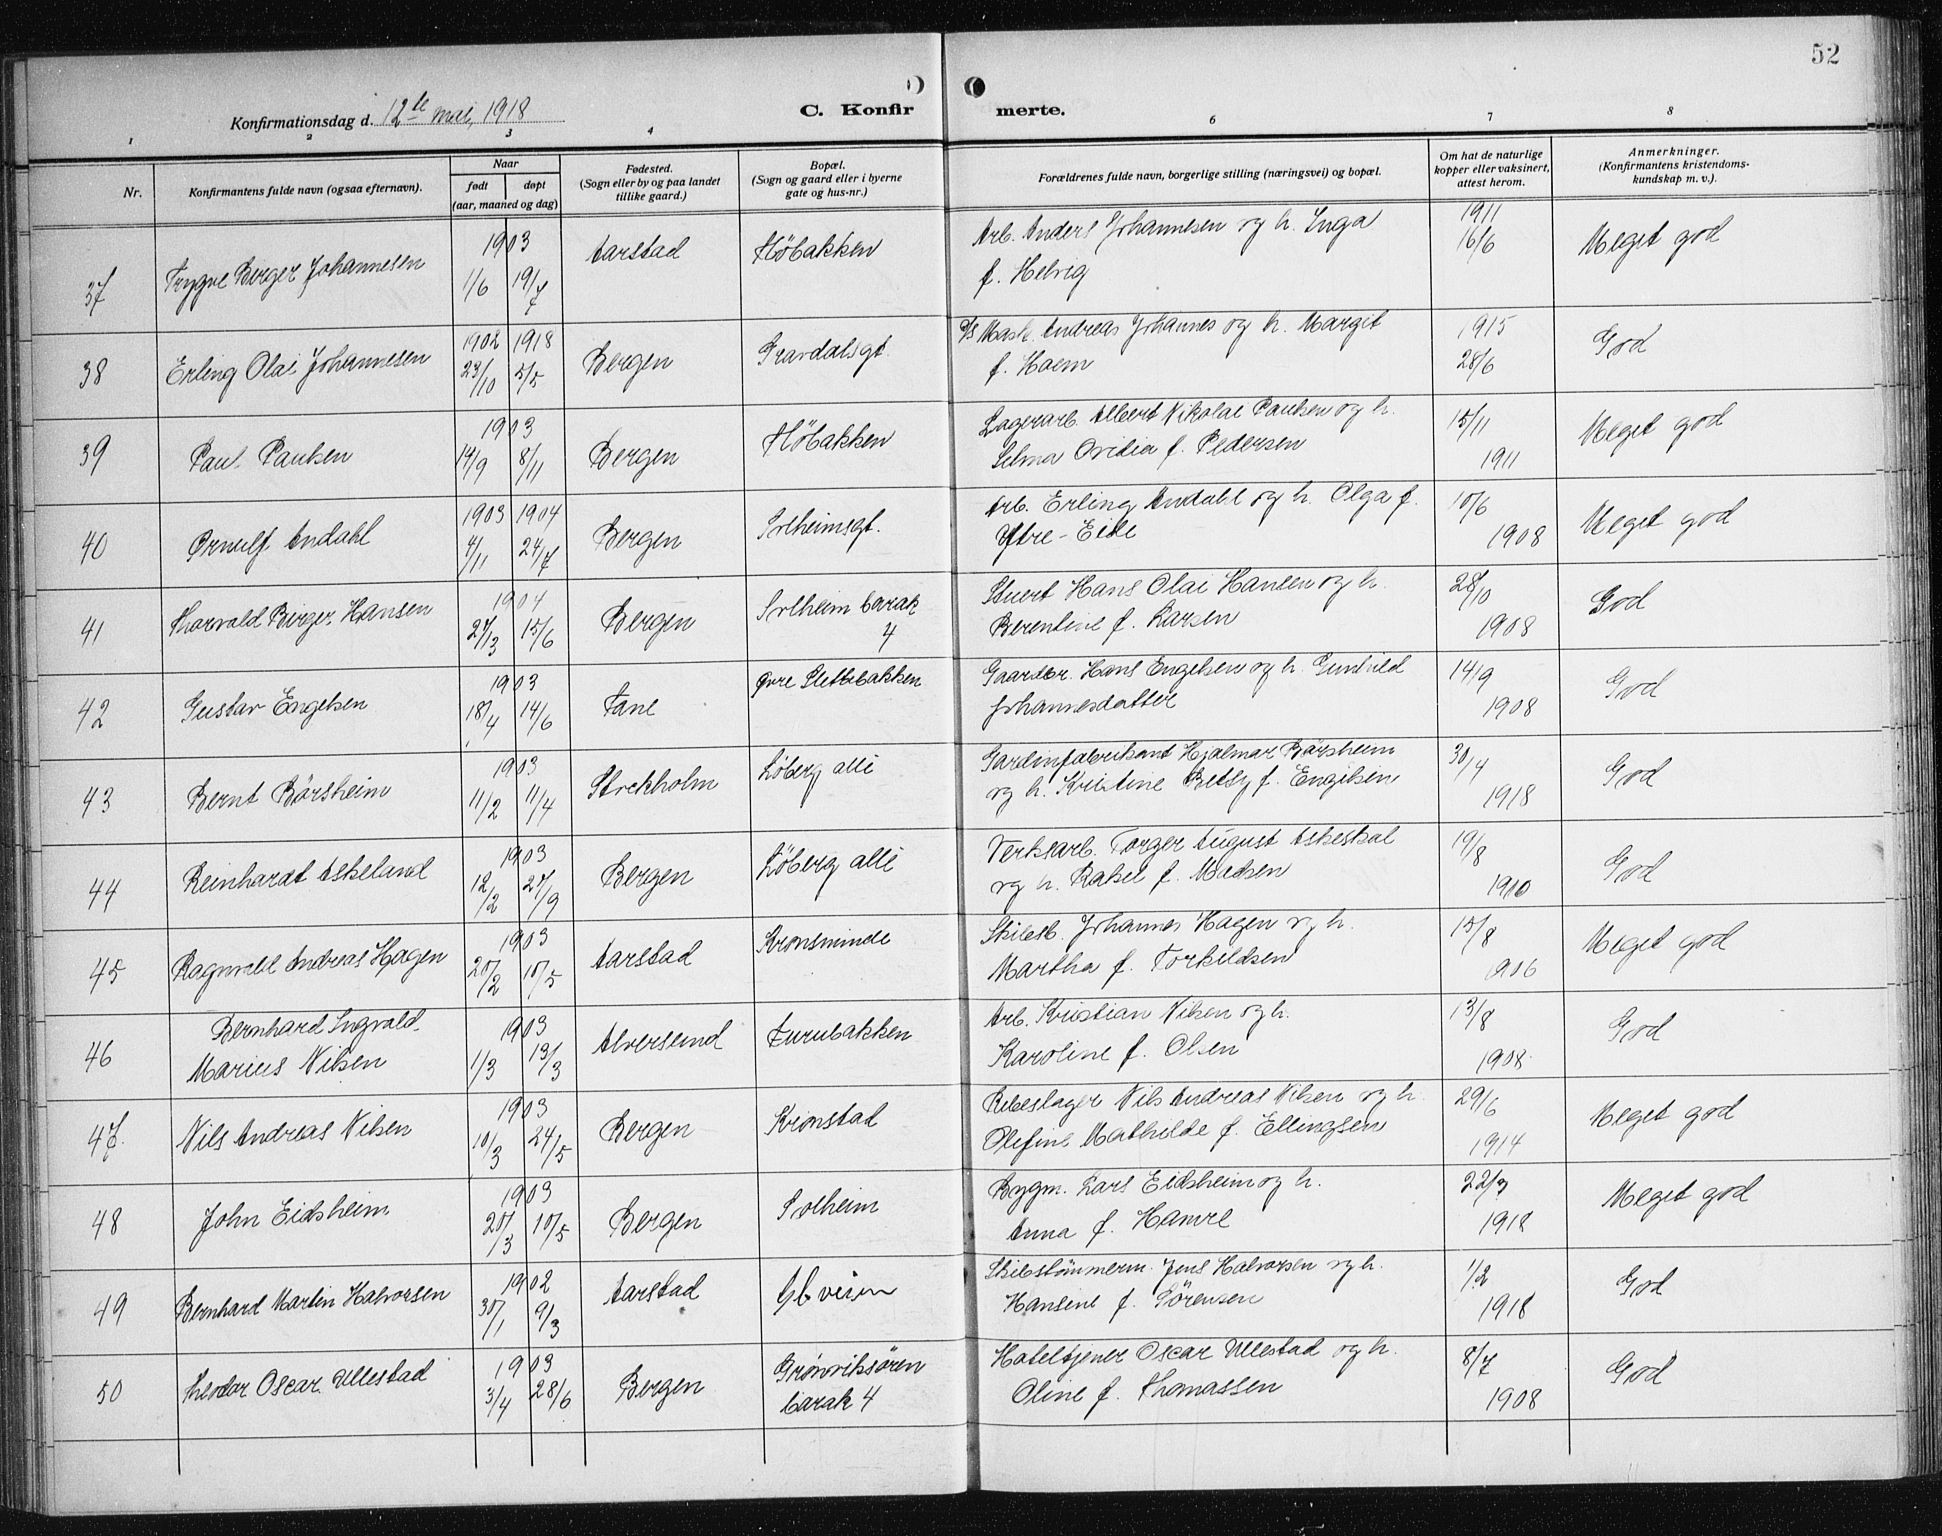 52
Konfirmationsdag d. 12te mai, 1918
C. Konfir merte.
1 2 3 4 6 7 8
Nr.
Konfirmantens fulde navn (ogsaa efternavn).
Naar
født døpt
(aar, maaned og dag)
Fødested.
(Sogn eller by og paa landet
tillike gaard.)
Bopæl.
(Sogn og gaard eller i byerne
gate og hus-nr.)
Forældrenes fulde navn, borgerlige stilling (næringsvei) og bopæl.
Om hat de naturlige
kopper eller vaksinert,
attest herom.
Anmerkninger.
(Konfirmantens kristendoms-
kundskap m. v.).
37 Trygve Berger Johannesen 1903 1/6 19/7 Aarstad Höbakken
Arb. Anders Johannesen og h. Inga
f. Helvig
1911 16/6 Meget god
38 Erling Olai Johannesen 1902 23/10 1918 5/5 Bergen
Mask. Andreas Johannes og h. Margit
f. Haem
1915 28/6 God
39 Paul Paulsen 1903 14/9 8/11 Bergen Höbakken
Lagerarb. Albert Nikolai Paulsen og h.
Selma Ovidia f. Pedersen
15/11 1911 Meget god
40 Ørnulf Andahl 1903 4/11 1904 24/7 Bergen Solheimsgt.
Arb. Erling Andahl og h. Olga f.
Ytre-Eide
10/6 1908 Meget god
41 Thorvald Birger Hansen 1904 27/3 15/6 Bergen Solheim barak
4
Stuert Hans Olai Hansen og h.
Berentine f. Larsen
28/10 1908 God
42 Gustav Engelsen 1903 18/4 14/6 Fane Øvre Slettebakken
Gaardbr. Hans Engelsen og h. Gunhild
Johannesdatter
14/9 1908 God
43 Bernt Börsheim 1903 11/2 11/4 Stockholm Löberg alle
Gardinfabrikant Hjalmar Börsheim
og h. Kristine Betsy f. Engelsen
30/4 1918 God
44 Reinhardt Askeland 1903 12/2 27/9 Bergen Löberg alle
Verksarb. Torger August
og h. Rakel f. Madsen
19/8 1910 God
45 Ragnvald Andreas Hagen 1903 20/2 10/5 Aarstad Kronsminde
Skibsb. Johannes Hagen og h.
Martha f. Torkildsen
15/8 1906 Meget god
46 Bernhard Ingvald
Marius Nilsen 1903 1/3 13/3 Alversund Furubakken
Arb. Kristian Nilsen og h.
Karoline f. Olsen
13/8 1908 God
47. Nils Andreas Nilsen 1903 10/3 24/5 Bergen Kronstad
Rebeslager Nils Andreas Nilsen og h.
Olefine Mathilde f. Ellingsen
29/6 1914 Meget god
48 John Eidsheim 1903 20/3 10/5 Bergen Solheim
Bygm. Lars Eidsheim og h.
Anna f. Hamre
22/3 1918 Meget god
49 Bernhard Martin Halvorsen 1902 30/1 9/3 Aarstad
Skibstömmerm. Jens Halvorsen og h.
Hansine f. Sörensen
1/2 1918 God
50 Theodor Oscar Ullestad 1903 3/4 28/6 Bergen Grönviksören
barak 4
Hoteltjener Oscar Ullestad og h.
Oline f. Thomassen
8/7 1908 God